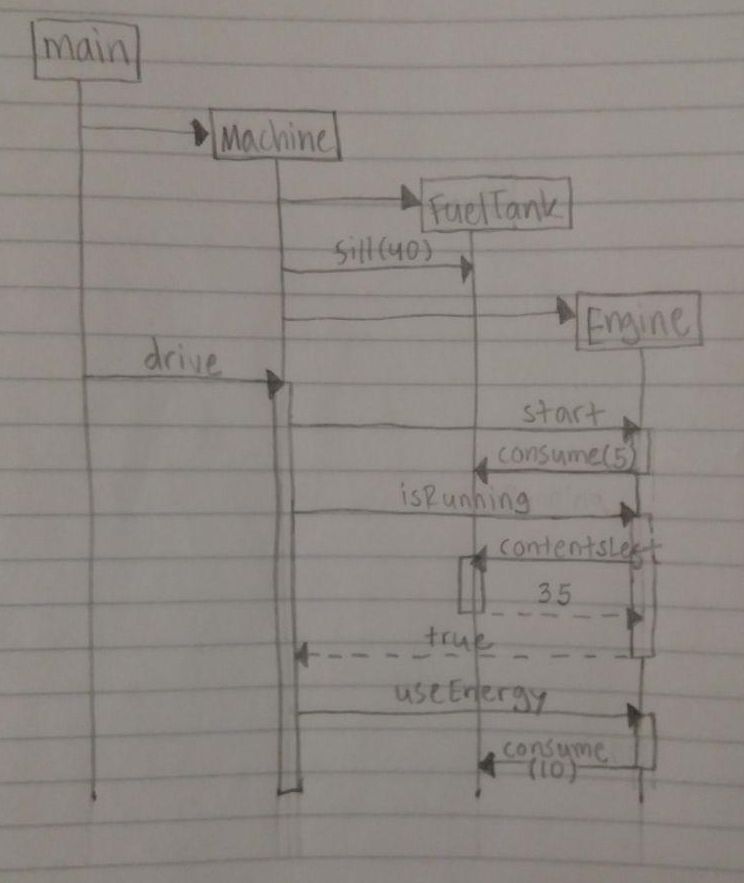 main
Machine
FuelTank
fill(40)
Engine
drive
start
consume(5)
isRunning
contentsLeft
35
true
useEnergy
consume
(10)